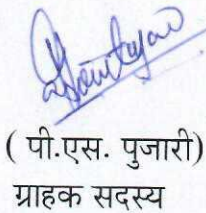 ( पी.एस. पुजारी)
ग्राहक सदस्य